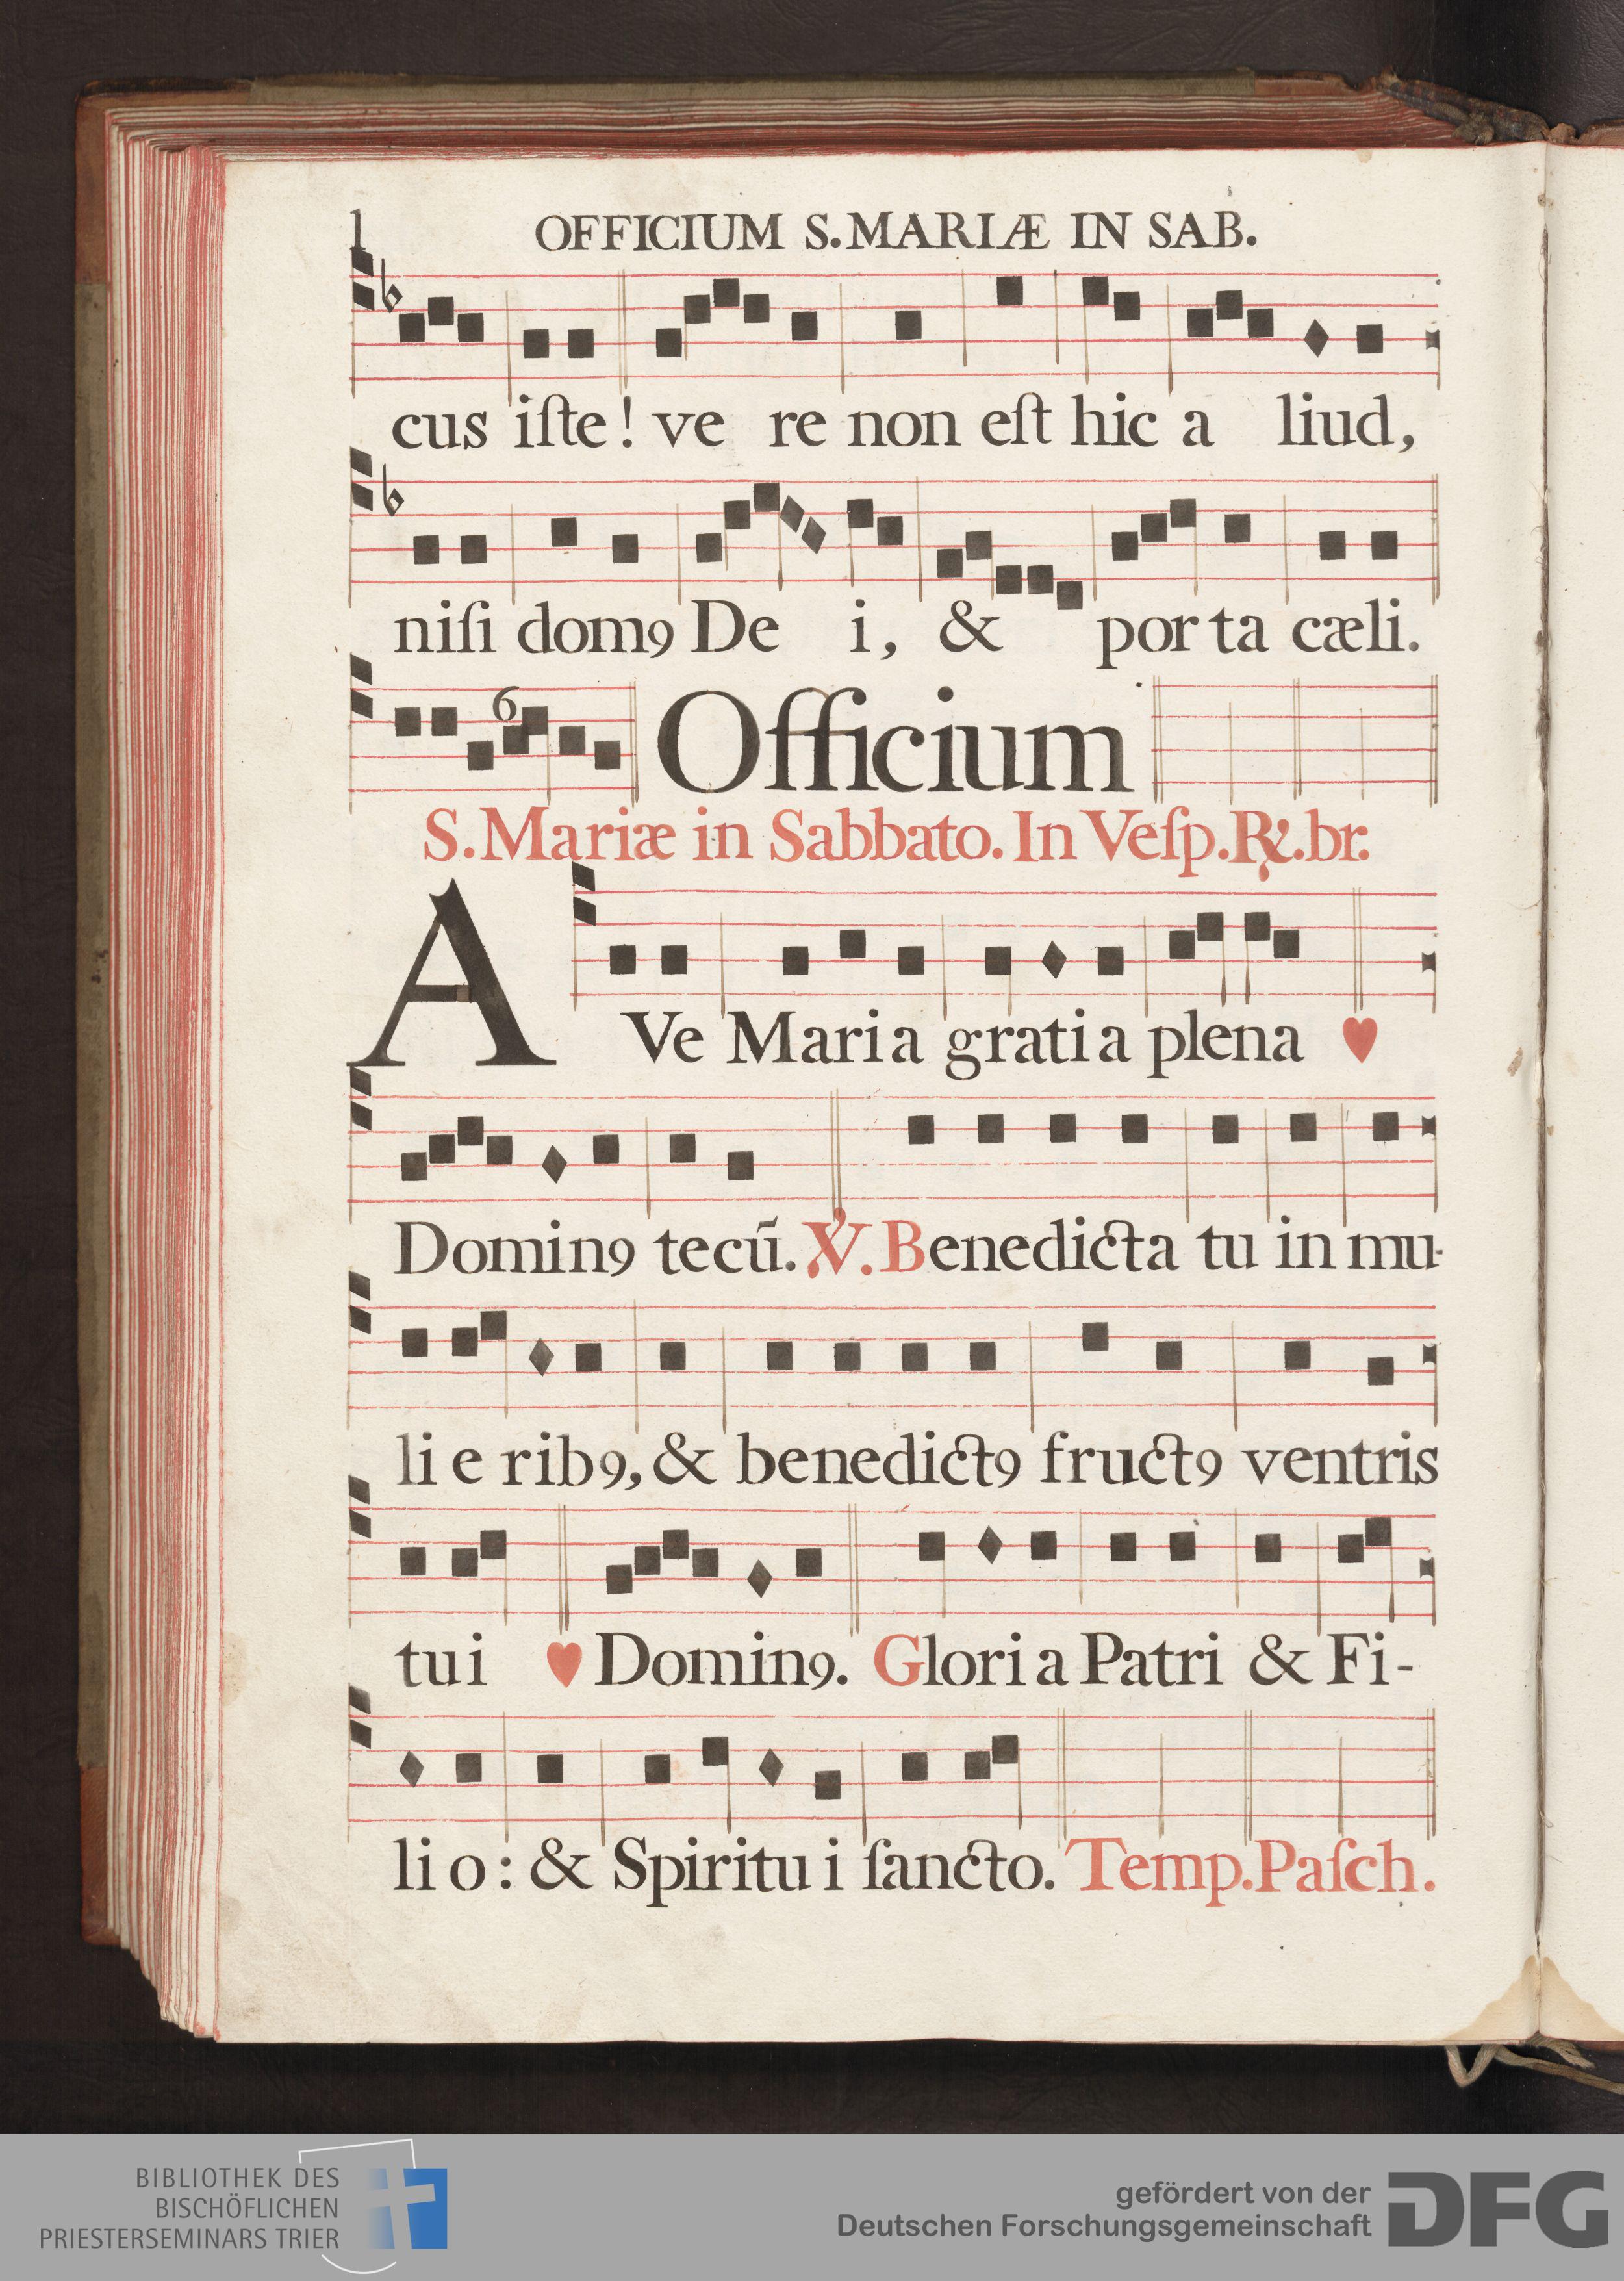 l OFFICIUM S. MARIÆ IN SAB.
cus iſte! ve re non eſt hic a liud,
niſi domꝯ De i, & por ta cæli.
6 Officium
S. Mariæ in Sabbato. In Veſp. ℟. br.
A Ve Mari a grati a plena ♥
Dominꝯ tecū. ℣. Benedicta tu in mu-
li e ribꝯ, & benedictꝯ fructꝯ ventris
tu i ♥ Dominꝯ. Glori a Patri & Fi-
li o : & Spiritu i ſancto. Temp. Paſch.
BIBLIOTHEK DES
BISCHÖFLICHEN
PRIESTERSEMINARS TRIER
gefördert von der
Deutschen Forschungsgemeinschaft
DFG